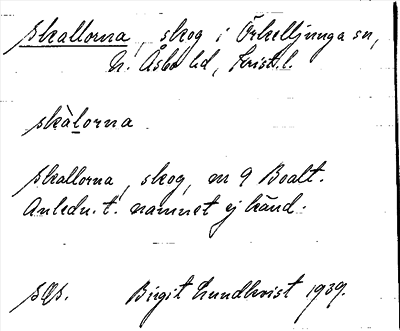 Skallorna, skog i Örkelljunga sn,
N. Åsbo hd, Krist. l.
skàlorna
Skallorna, skog, m 9 Boalt.
Anledn. t. namnet ej känd.
Birgit Lundkvist 1939.